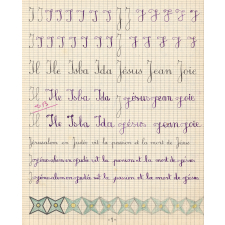 I I I I I I I J J J J J J J
I I I I I I I I J J J J J J J
Il Ile Isba Ida Jésus Jean Joie
Il Ile Isba Ida Jésus Jean Joie
Il Ile Isba Ida Jésus Jean Joie
Jérusalem en Judée est la passion et la mort de Jésus
Jérusalem en Judée est la passion et la mort de Jésus
Jérusalem en Judée est la passion et la mort de Jésus